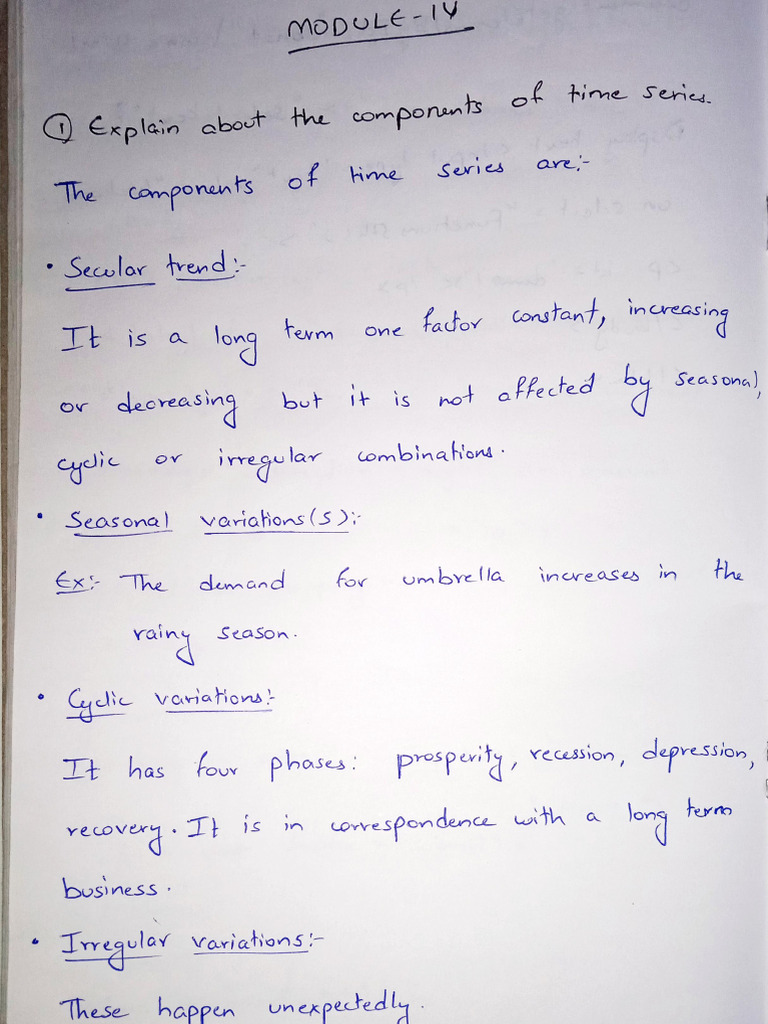 MODULE-IV
① Explain about the components of time series.
The components of time series are:-
• Secular trend:-
It is a long term one factor constant, increasing
or decreasing but it is not affected by seasonal,
cyclic or irregular combinations.
• Seasonal variations(s):-
Ex:- The demand for umbrella increases in the
rainy season.
• Cyclic variations:-
It has four phases: prosperity, recession, depression,
recovery. It is in correspondence with a long term
business.
• Irregular variations:-
These happen unexpectedly.